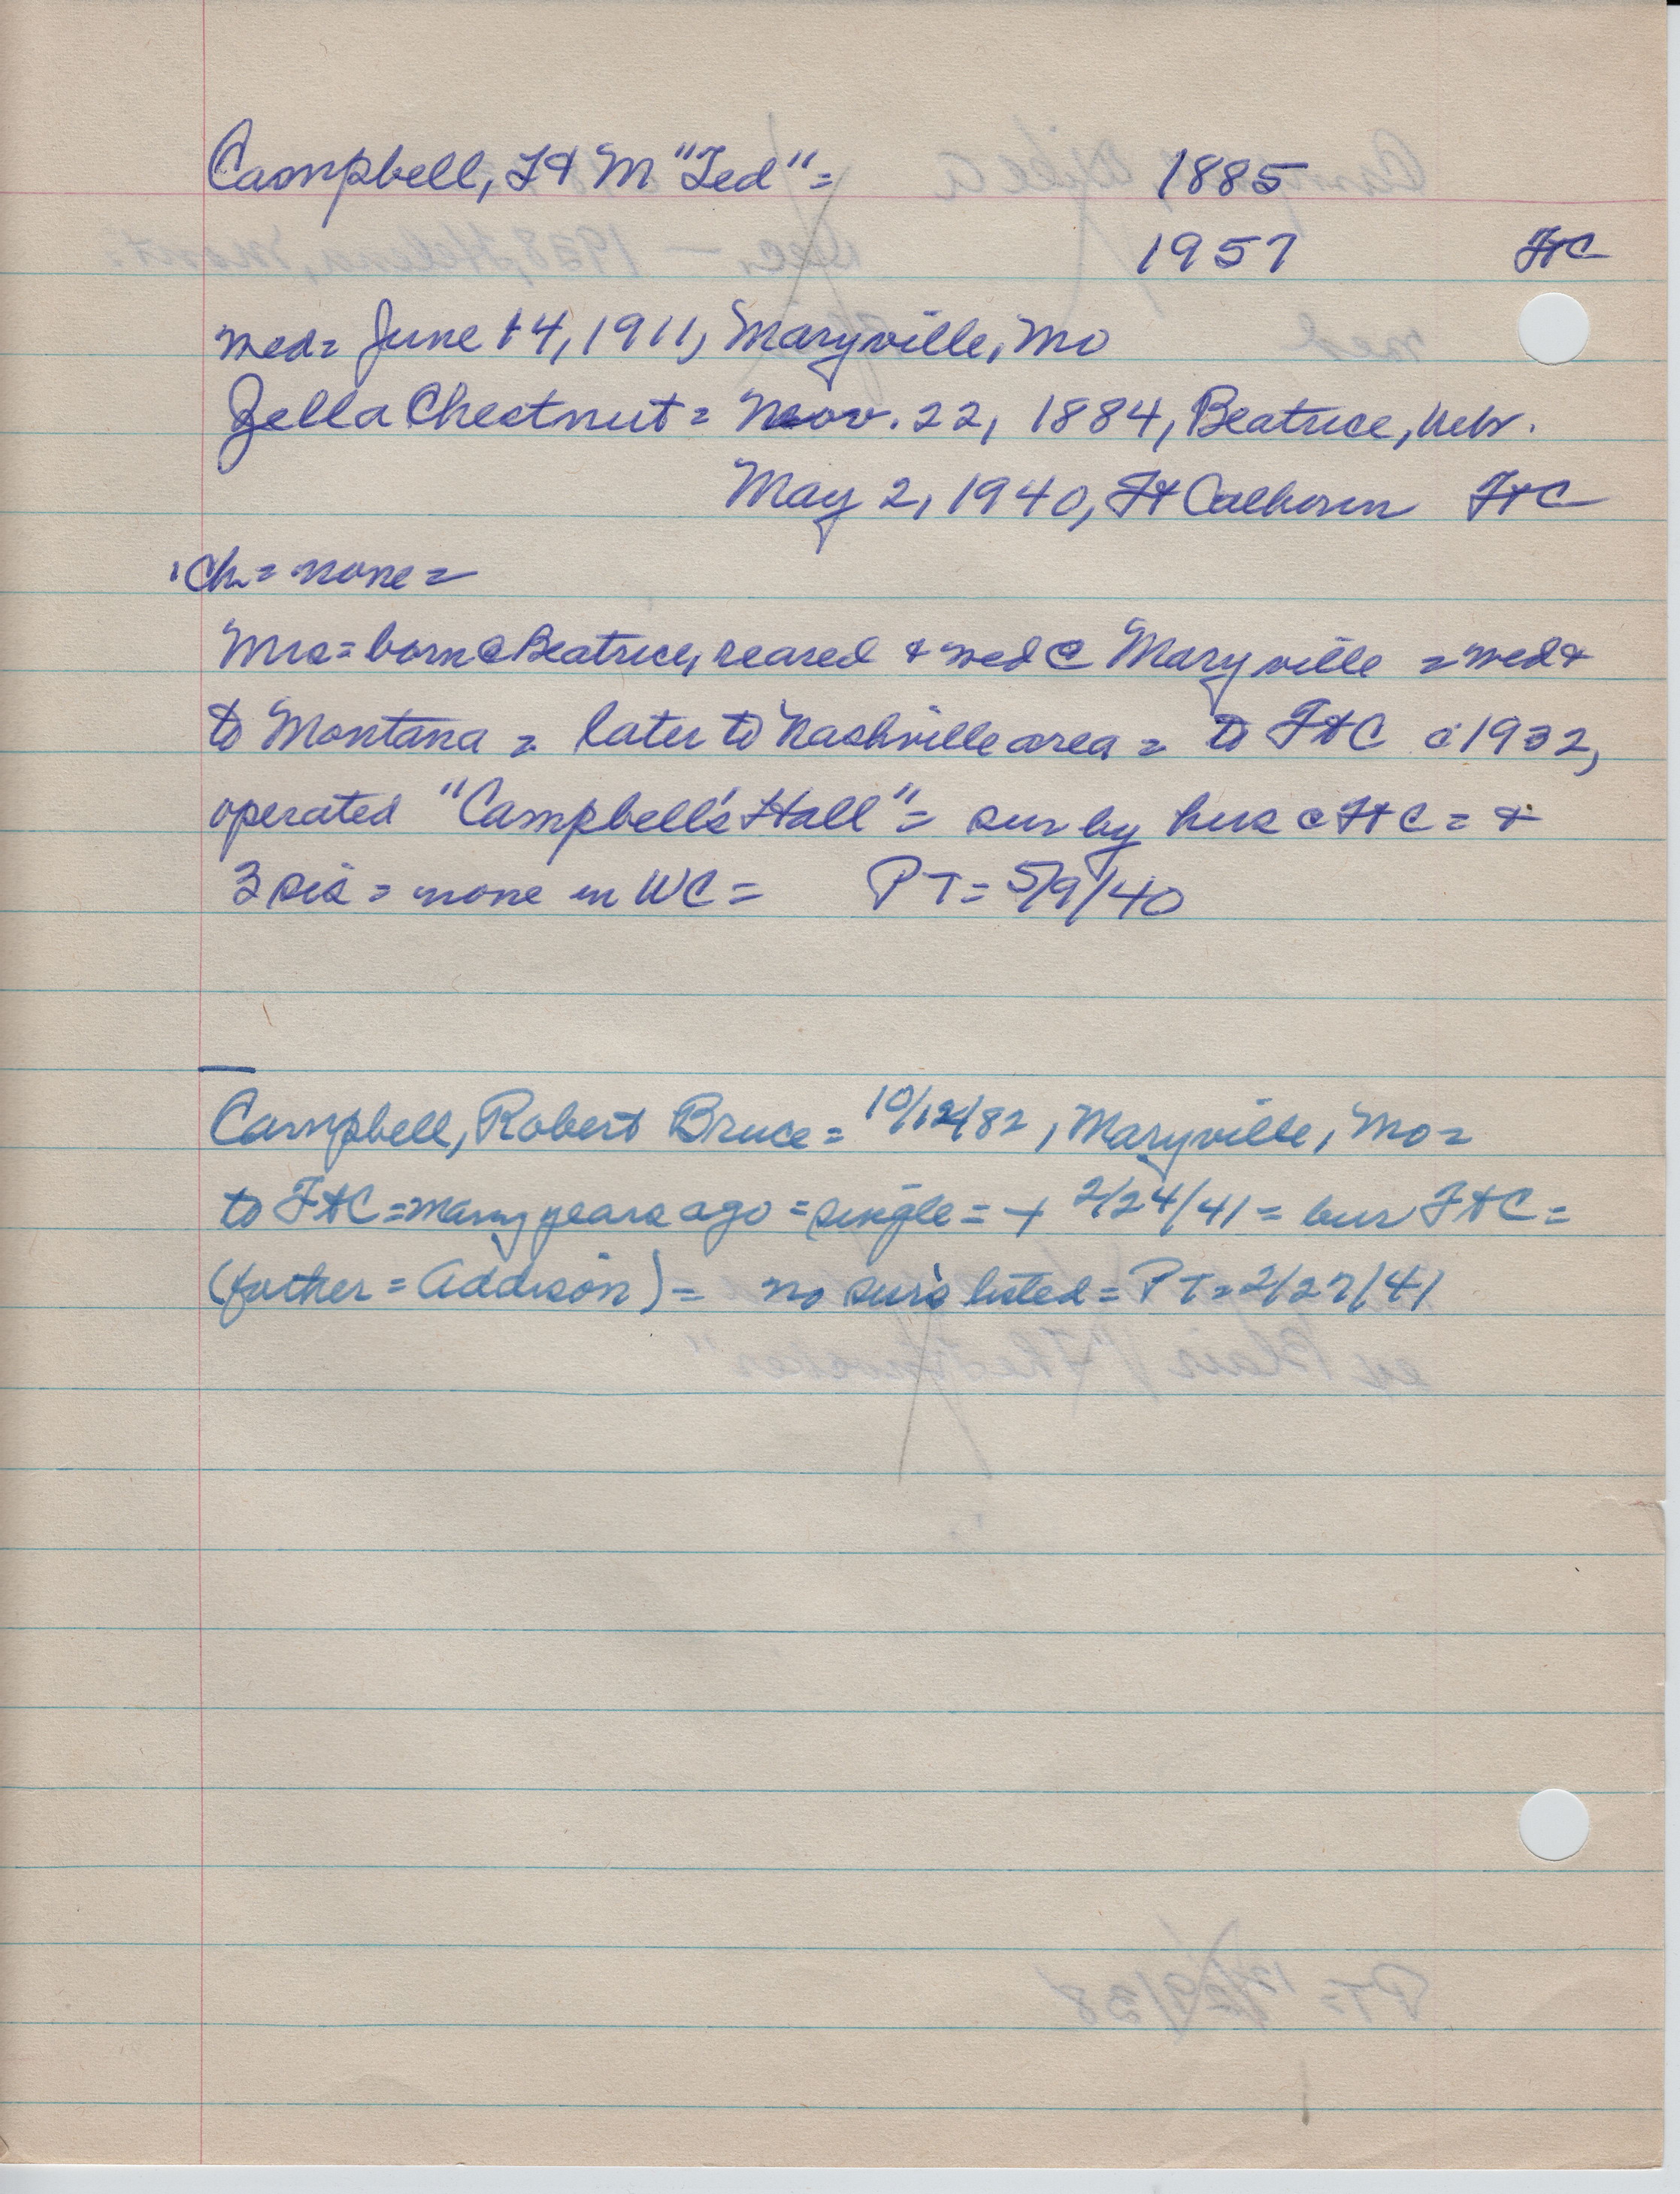 Campbell, F M "Ted" = 1885
1957 FtC
med = June 14, 1911, Maryville, Mo
Zella Chestnut = Nov. 22, 1884, Beatrice, Nebr.
May 2, 1940, Ft Calhoun FtC
Ch = none =
Mrs = born @ Beatrice, reared & med @ Maryville = med &
to Montana = later to Nashville area = to FtC c 1932,
operated "Campbell's Hall" = sur by hus @ FtC = &
3 sis = none in WC = PT = 5/9/40
Campbell, Robert Bruce = 10/ /82, Maryville, Mo =
to FtC = many years ago = single = + 2/24/41 = bur FtC =
(father = Addison) = no surs listed = PT = 2/27/41